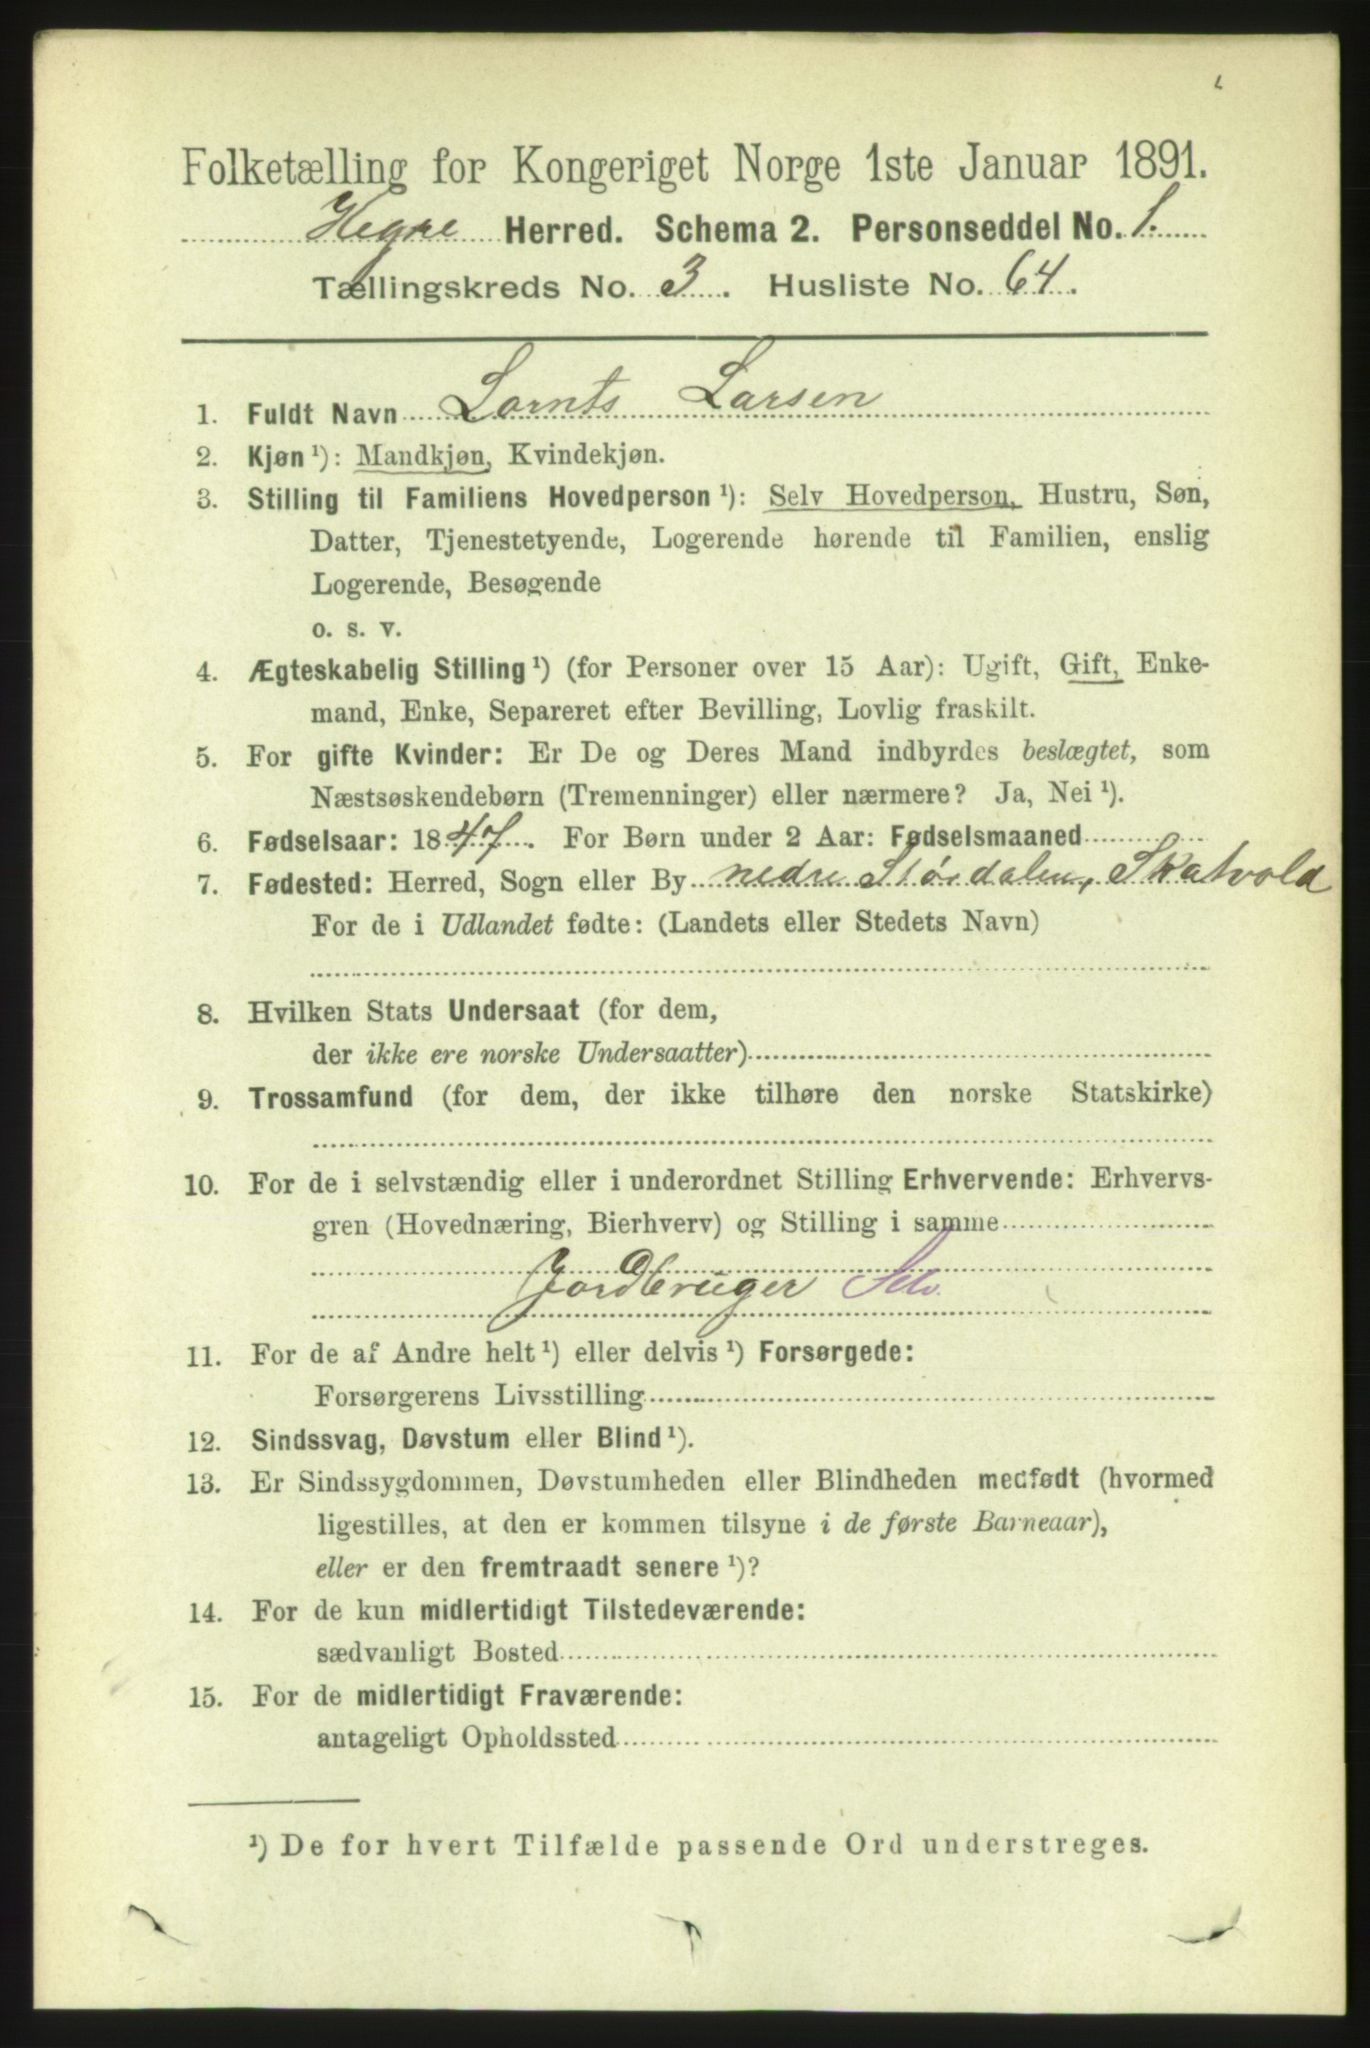 Folketælling for Kongeriget Norge 1ste Januar 1891.
Hegre Herred. Schema 2. Personseddel No. 1.
Tællingskreds No. 3. Husliste No. 64.
1. Fuldt Navn Lornts Larsen
2. Kjøn ¹): Mandkjøn, Kvindekjøn.
3. Stilling til Familiens Hovedperson ¹): Selv Hovedperson, Hustru, Søn,
Datter, Tjenestetyende, Logerende hørende til Familien, enslig
Logerende, Besøgende
o. s. v.
4. Ægteskabelig Stilling ¹) (for Personer over 15 Aar): Ugift, Gift, Enke-
mand, Enke, Separeret efter Bevilling, Lovlig fraskilt.
5. For gifte Kvinder: Er De og Deres Mand indbyrdes beslægtet, som
Næstsøskendebørn (Tremenninger) eller nærmere? Ja, Nei ¹).
6. Fødselsaar: 1847. For Børn under 2 Aar: Fødselsmaaned
7. Fødested: Herred, Sogn eller By nedre Størdalen, Skatvold
For de i Udlandet fødte: (Landets eller Stedets Navn)
8. Hvilken Stats Undersaat (for dem,
der ikke ere norske Undersaatter)
9. Trossamfund (for dem, der ikke tilhøre den norske Statskirke)
10. For de i selvstændig eller i underordnet Stilling Erhvervende: Erhvervs-
gren (Hovednæring, Bierhverv) og Stilling i samme
Jordbruger Selv.
11. For de af Andre helt ¹) eller delvis ¹) Forsørgede:
Forsørgerens Livsstilling
12. Sindssvag, Døvstum eller Blind ¹).
13. Er Sindssygdommen, Døvstumheden eller Blindheden medfødt (hvormed
ligestilles, at den er kommen tilsyne i de første Barneaar),
eller er den fremtraadt senere ¹)?
14. For de kun midlertidigt Tilstedeværende:
sædvanligt Bosted
15. For de midlertidigt Fraværende:
antageligt Opholdssted
¹) De for hvert Tilfælde passende Ord understreges.